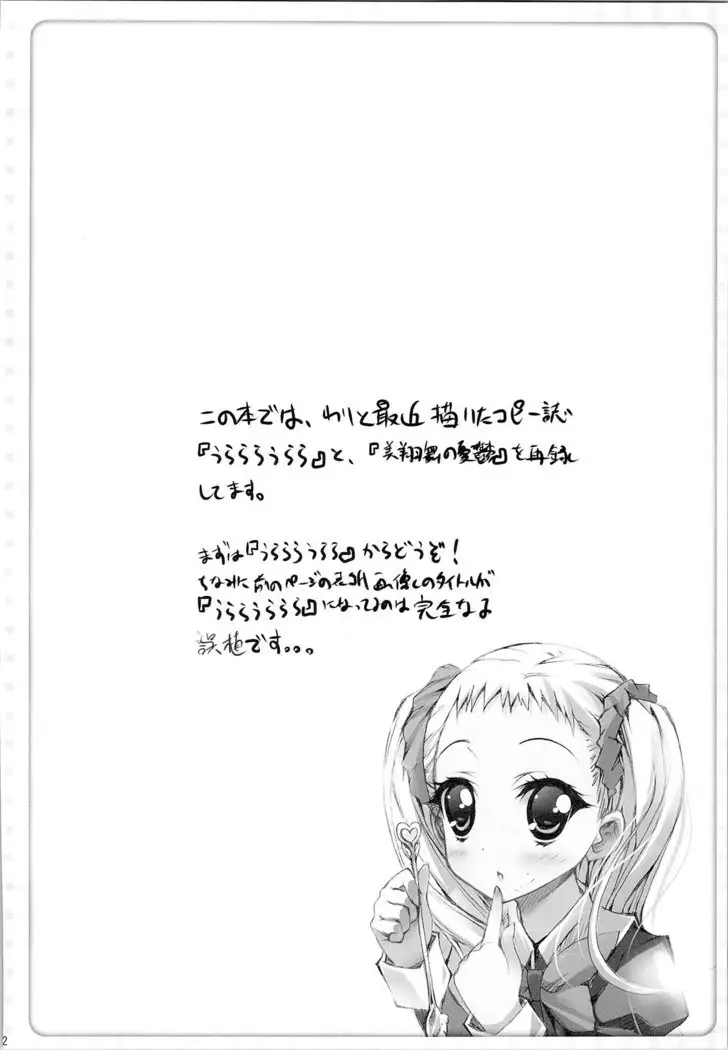 この本では、わりと最近描いたコピー誌
『うららうらら』と、『美翔舞の憂鬱』を再録
してます。
まずは『うららうらら』からどうぞ!
ちなみに前のページの 画像しのタイトルが
『うららうらら』になってるのは完全なる
誤植です。。。
2